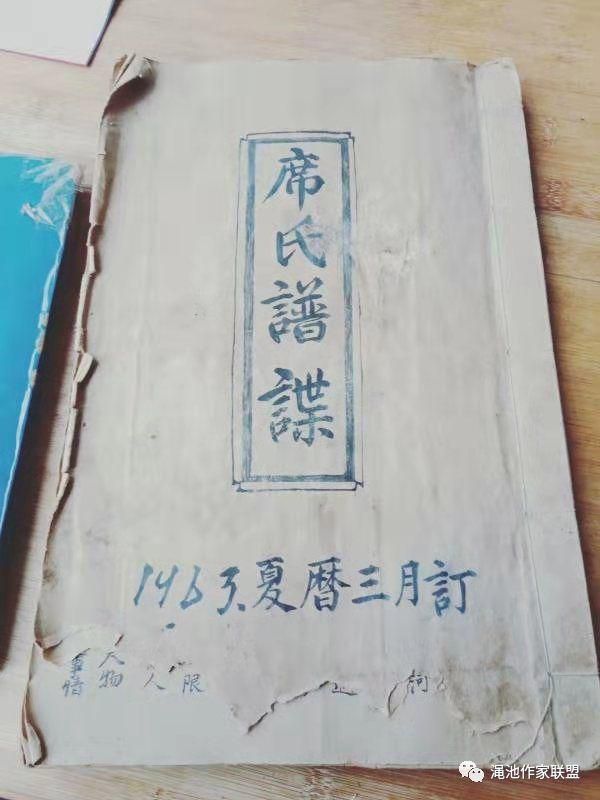 席氏譜諜
1963.夏曆三月訂
事情 人物 人 限
渑池作家联盟